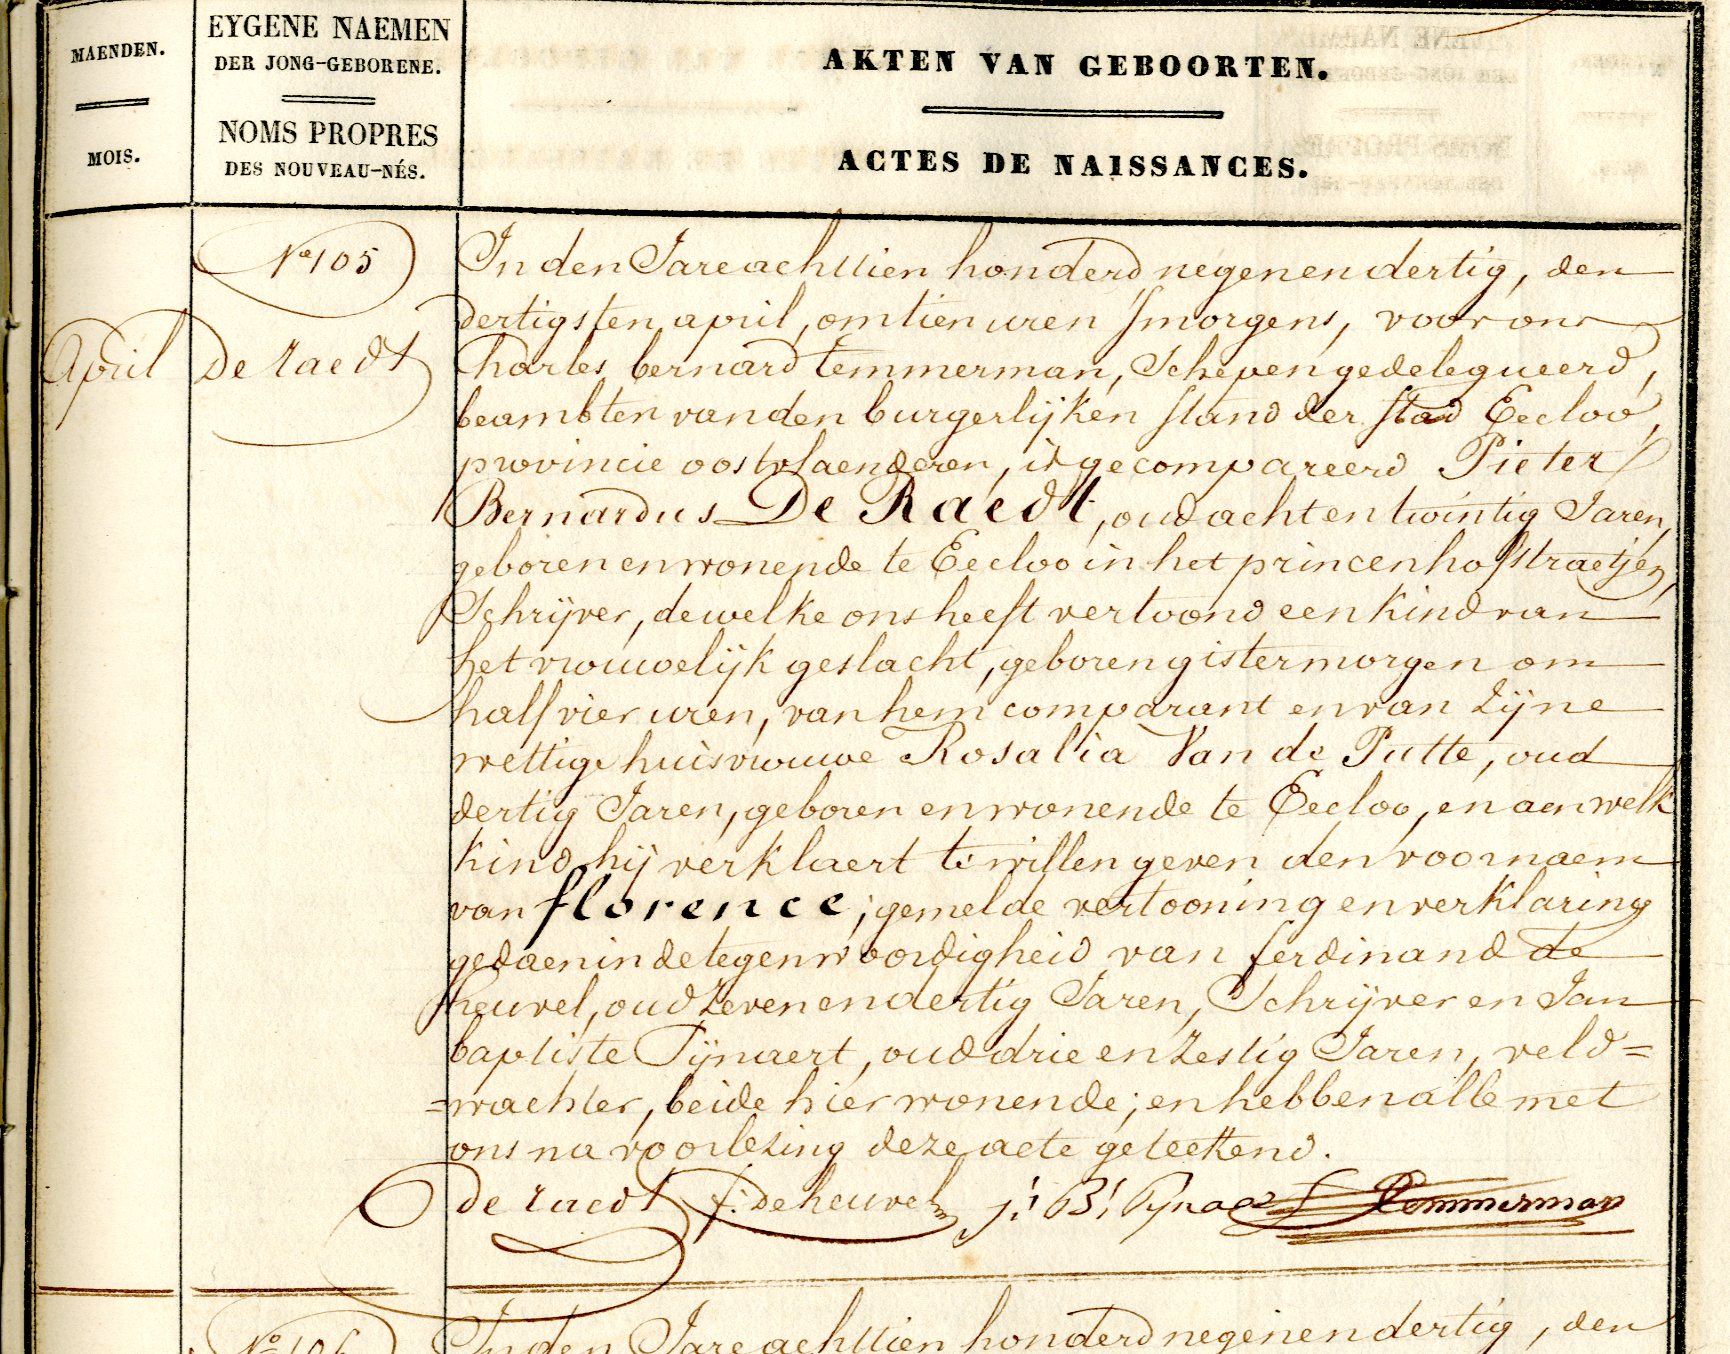 MAENDEN.
MOIS.
EYGENE NAEMEN
DER JONG-GEBORENE.
NOMS PROPRES
DES NOUVEAU-NÉS.
AKTEN VAN GEBOORTEN.
ACTES DE NAISSANCES.
N° 105
April
De Raedt
In den Jare achttien honderd negenendertig, den
dertigsten april, om tien uren smorgens, voor ons
Charles bernard temmerman, Schepen gedelegueerd,
beambten van den burgerlijken stand der stad Eecloo,
provincie oostvlaenderen, is gecompareerd Pieter
Bernardus De Raedt, oud acht en twintig Jaren,
geboren en wonende te Eecloo in het princenhofstraetjen,
Schrijver, dewelke ons heeft vertoond een kind van
het vrouwelijk geslacht, geboren gistermorgen om
half vier uren, van hem comparant en van zijne
wettige huisvrouwe Rosalia Van de Putte, oud
dertig Jaren, geboren en wonende te Eecloo, en aen welk
kind hij verklaert te willen geven den voornaem
van florence; gemelde vertooning en verklaring
gedaen in de tegenwoordigheid van ferdinand de
heuvel, oud zeven en dertig Jaren, Schrijver en Jan
baptiste Pijnaert, oud drie en zestig Jaren, veld=
=wachter, beide hier wonende; en hebben alle met
ons na voorlezing deze acte geteekend.
de raedt f: deheuvel j: B: Pynae Temmerman
N° 106
In den Jare achttien honderd negenendertig, den